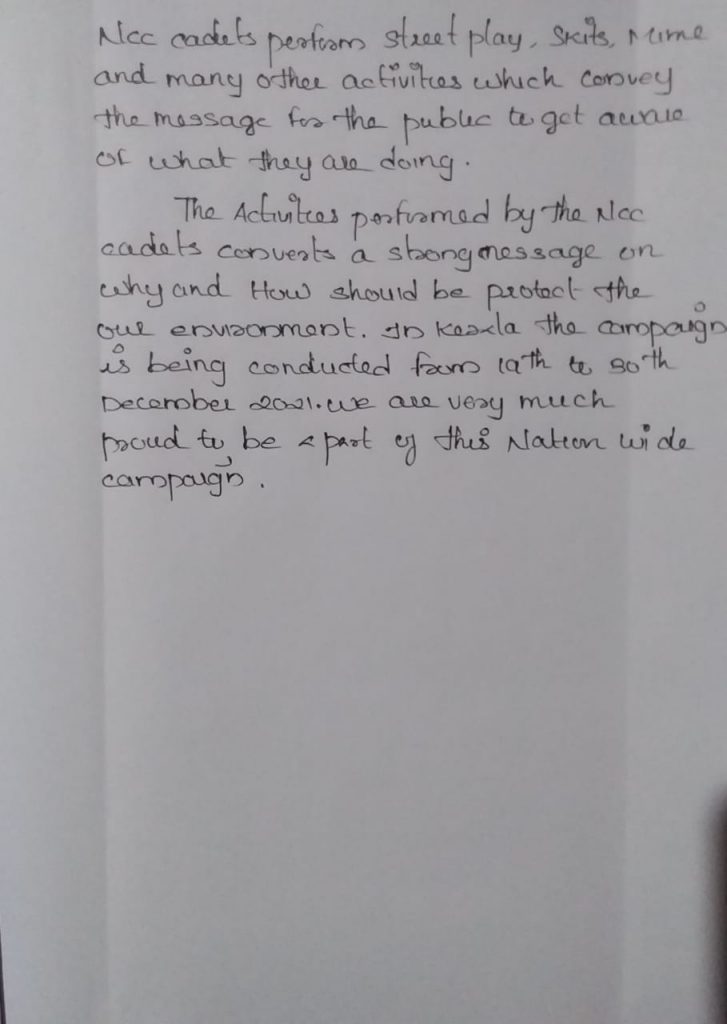 Ncc cadets perform street play, Skits, Mime
and many other activities which convey
the message for the public to get aware
of what they are doing.
The Activities performed by the Ncc
cadets converts a strong message on
why and How should be protect the
our environment. In Kerala the campaign
is being conducted from 19th to 30th
December 2021. we are very much
proud to be a part of this Nation wide
campaign.